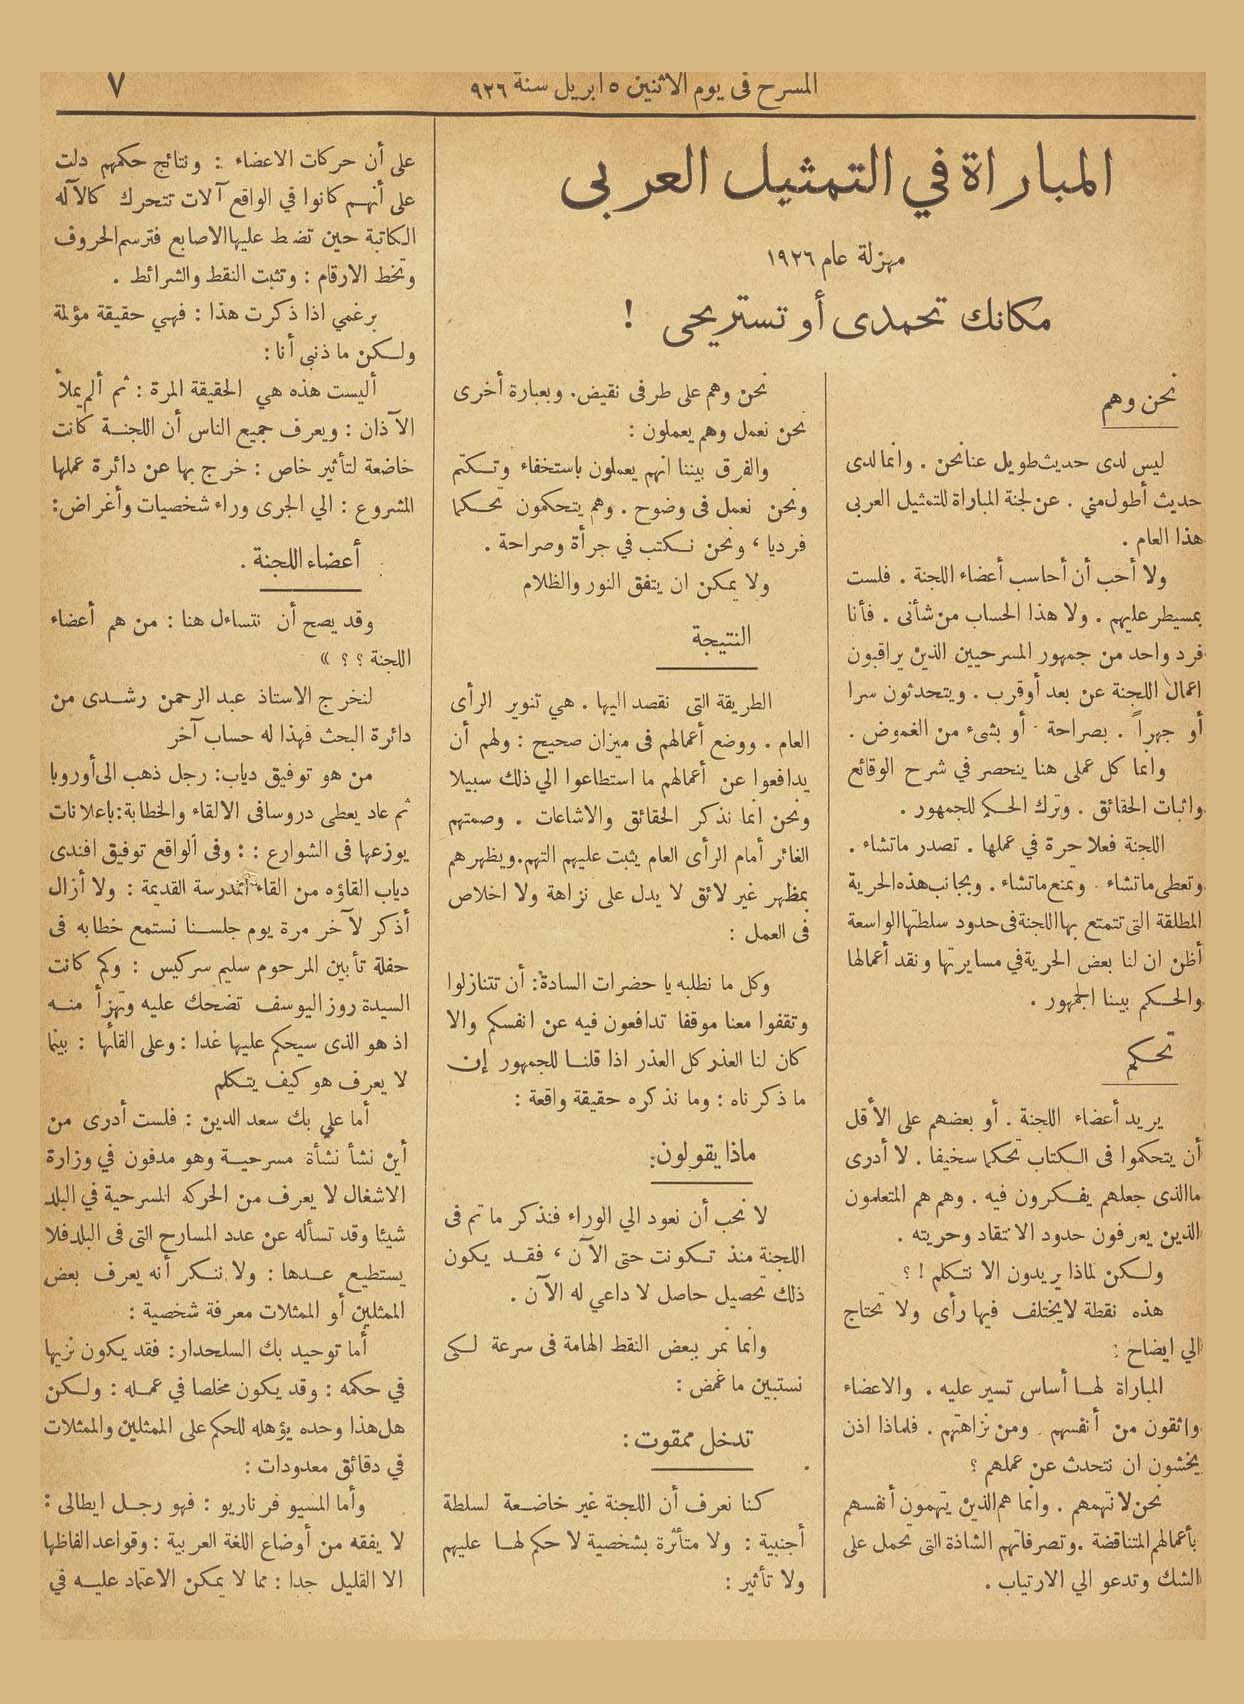 المسرح فى يوم الاثنين ٥ ابريل سنة ٩٢٦
٧
المباراة في التمثيل العربى
مهزلة عام ١٩٢٦
مكانك تحمدى أو تستريحى !
نحن وهم
ليس لدى حديث طويل عنا نحن . وانما لدى
حديث أطول مني . عن لجنة المباراة للتمثيل العربى
هذا العام .
ولا أحب أن أحاسب أعضاء اللجنة . فلست
بمسيطر عليهم . ولا هذا الحساب من شأنى . فأنا
فرد واحد من جمهور المسرحيين الذين يراقبون
اعمال اللجنة عن بعد أو قرب . ويتحدثون سرا
أو جهراً . بصراحة . أو بشىء من الغموض .
وانما كل عملى هنا ينحصر في شرح الوقائع
واثبات الحقائق . وترك الحكم للجمهور .
اللجنة فعلا حرة في عملها . تصدر ما تشاء .
وتعطى ما تشاء . وتمنع ما تشاء . وبجانب هذه الحرية
المطلقة التى تتمتع بها اللجنة فى حدود سلطتها الواسعة
أظن ان لنا بعض الحرية في مسايرتها ونقد أعمالها
والحكم بيننا الجمهور .
تحكم
يريد أعضاء اللجنة . أو بعضهم على الأقل
أن يتحكموا فى الكتاب تحكما سخيفا . لا أدرى
ما الذى جعلهم يفكرون فيه . وهم هم المتعلمون
الذين يعرفون حدود الانتقاد وحريته .
ولكن لماذا يريدون الا نتكلم ! ؟
هذه نقطة لا يختلف فيها رأى ولا تحتاج
الي ايضاح :
المباراة لها أساس تسير عليه . والاعضاء
واثقون من أنفسهم . ومن نزاهتهم . فلماذا اذن
يخشون ان نتحدث عن عملهم ؟
نحن لا نتهمهم . وانما هم الذين يتهمون أنفسهم
بأعمالهم المتناقضة . وتصرفاتهم الشاذة التى تحمل على
الشك وتدعو الي الارتياب .
نحن وهم على طرفى نقيض . وبعبارة أخرى
نحن نعمل وهم يعملون :
والفرق بيننا انهم يعملون باستخفاء وتكتم
ونحن نعمل فى وضوح . وهم يتحكمون تحكما
فرديا ، ونحن نكتب في جرأة وصراحة .
ولا يمكن ان يتفق النور والظلام
النتيجة
الطريقة التى نقصد اليها . هي تنوير الرأى
العام . ووضع أعمالهم فى ميزان صحيح : ولهم أن
يدافعوا عن أعمالهم ما استطاعوا الي ذلك سبيلا
ونحن انما نذكر الحقائق والاشاعات . وصمتهم
الغائر أمام الرأى العام يثبت عليهم التهم . ويظهرهم
بمظهر غير لائق لا يدل على نزاهة ولا اخلاص
فى العمل :
وكل ما نطلبه يا حضرات السادة : أن تتنازلوا
وتقفوا معنا موقفا تدافعون فيه عن انفسكم والا
كان لنا العذر كل العذر اذا قلنا للجمهور إن
ما ذكرناه : وما نذكره حقيقة واقعة :
ماذا يقولون :
لا نحب أن نعود الي الوراء فنذكر ما تم فى
اللجنة منذ تكونت حتى الآن ، فقد يكون
ذلك تحصيل حاصل لا داعي له الآن .
وانما نمر ببعض النقط الهامة فى سرعة لكى
نستبين ما غمض :
تدخل ممقوت :
كنا نعرف أن اللجنة غير خاضعة لسلطة
أجنبية : ولا متأثرة بشخصية لا حكم لها عليهم
ولا تأثير :
على أن حركات الاعضاء : ونتائج حكمهم دلت
على أنهم كانوا في الواقع آلات تتحرك كالآله
الكاتبة حين تضط عليها الاصابع فترسم الحروف
وتخط الارقام : وتثبت النقط والشرائط .
برغمي اذا ذكرت هذا : فهي حقيقة مؤلمة
ولكن ما ذنبى أنا :
أليست هذه هي الحقيقة المرة : ثم ألم يملأ
الآذان : ويعرف جميع الناس أن اللجنة كانت
خاضعة لتأثير خاص : خرج بها عن دائرة عملها
المشروع : الي الجرى وراء شخصيات وأغراض :
أعضاء اللجنة .
وقد يصح أن نتساءل هنا : من هم أعضاء
اللجنة ؟ ؟ »
لنخرج الاستاذ عبد الرحمن رشدى من
دائرة البحث فهذا له حساب آخر
من هو توفيق دياب : رجل ذهب الى أوروبا
ثم عاد يعطى دروسا فى الالقاء والخطابة : باعلانات
يوزعها فى الشوارع : : وفى الواقع توفيق افندى
دياب القاؤه من القاء المدرسة القديمة : ولا أزال
أذكر لآخر مرة يوم جلسنا نستمع خطابه فى
حفلة تأبين المرحوم سليم سركيس : وكم كانت
السيدة روز اليوسف تضحك عليه وتهزأ منه
اذ هو الذى سيحكم عليها غدا : وعلى القائها : بينما
لا يعرف هو كيف يتكلم
أما علي بك سعد الدين : فلست أدرى من
أين نشأ نشأة مسرحية وهو مدفون في وزارة
الاشغال لا يعرف من الحركه المسرحية في البلد
شيئا وقد تسأله عن عدد المسارح التى فى البلد فلا
يستطيع عدها : ولا ننكر أنه يعرف بعض
الممثلين أو الممثلات معرفة شخصية :
أما توحيد بك السلحدار : فقد يكون نزيها
في حكمه : وقد يكون مخلصا في عمله : ولكن
هل هذا وحده يؤهله للحكم على الممثلين والممثلات
في دقائق معدودات :
وأما المسيو فرناريو : فهو رجل ايطالى :
لا يفقه من أوضاع اللغة العربية : وقواعد الفاظها
الا القليل جدا : مما لا يمكن الاعتماد عليه في